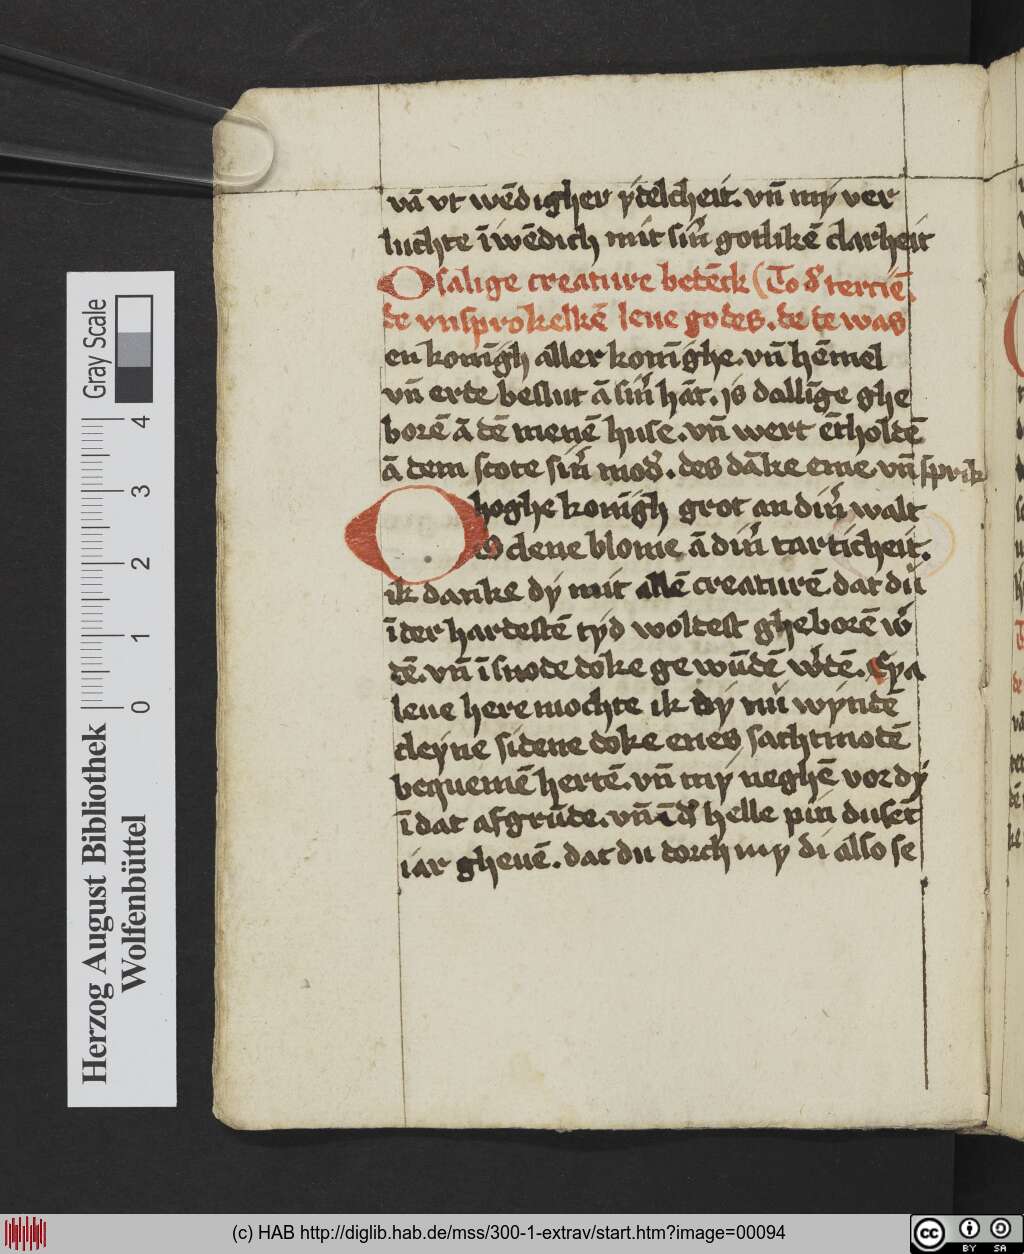 vā vt wēdigher ẏdelcheit. vn̄ mẏ ver
luchte īwēdich mit sin̄ gotlikē clarheit
O salige creature betēck (To d' terciē.
de vnsprokelkē leue godes. de te was
en konīgh aller konīghe. vn̄ hēmel
vn̄ erde beslut ā sin̄ hāt. is dallīge ghe
borē ā dē menē huse. vn̄ wert ētholdē
ā dem scote sin̄ mod'. des dāke eme vn̄ sprik
O hoghe konīgh grot an din̄ walt
O clene blome ā din̄ tarticheit.
ik danke dẏ mit allē creaturē. dat du
ī der hardestē tẏd woldest gheborē w'
dē. vn̄ ī snode doke ge wūdē w'dē. Eẏa
leue here mochte ik dẏ nu wẏndē
cleẏne sidene doke enes sachtmodē
bequemē hertē. vn̄ mẏ neghē vor dẏ
ī dat afgrūde. vn̄ ī d' helle pin dusēt
iar gheuē. dat du dorch mẏ di also se
Gray Scale
4
3
2
1
0
Herzog August Bibliothek
Wolfenbüttel
(c) HAB http://diglib.hab.de/mss/300-1-extrav/start.htm?image=00094
cc BY SA